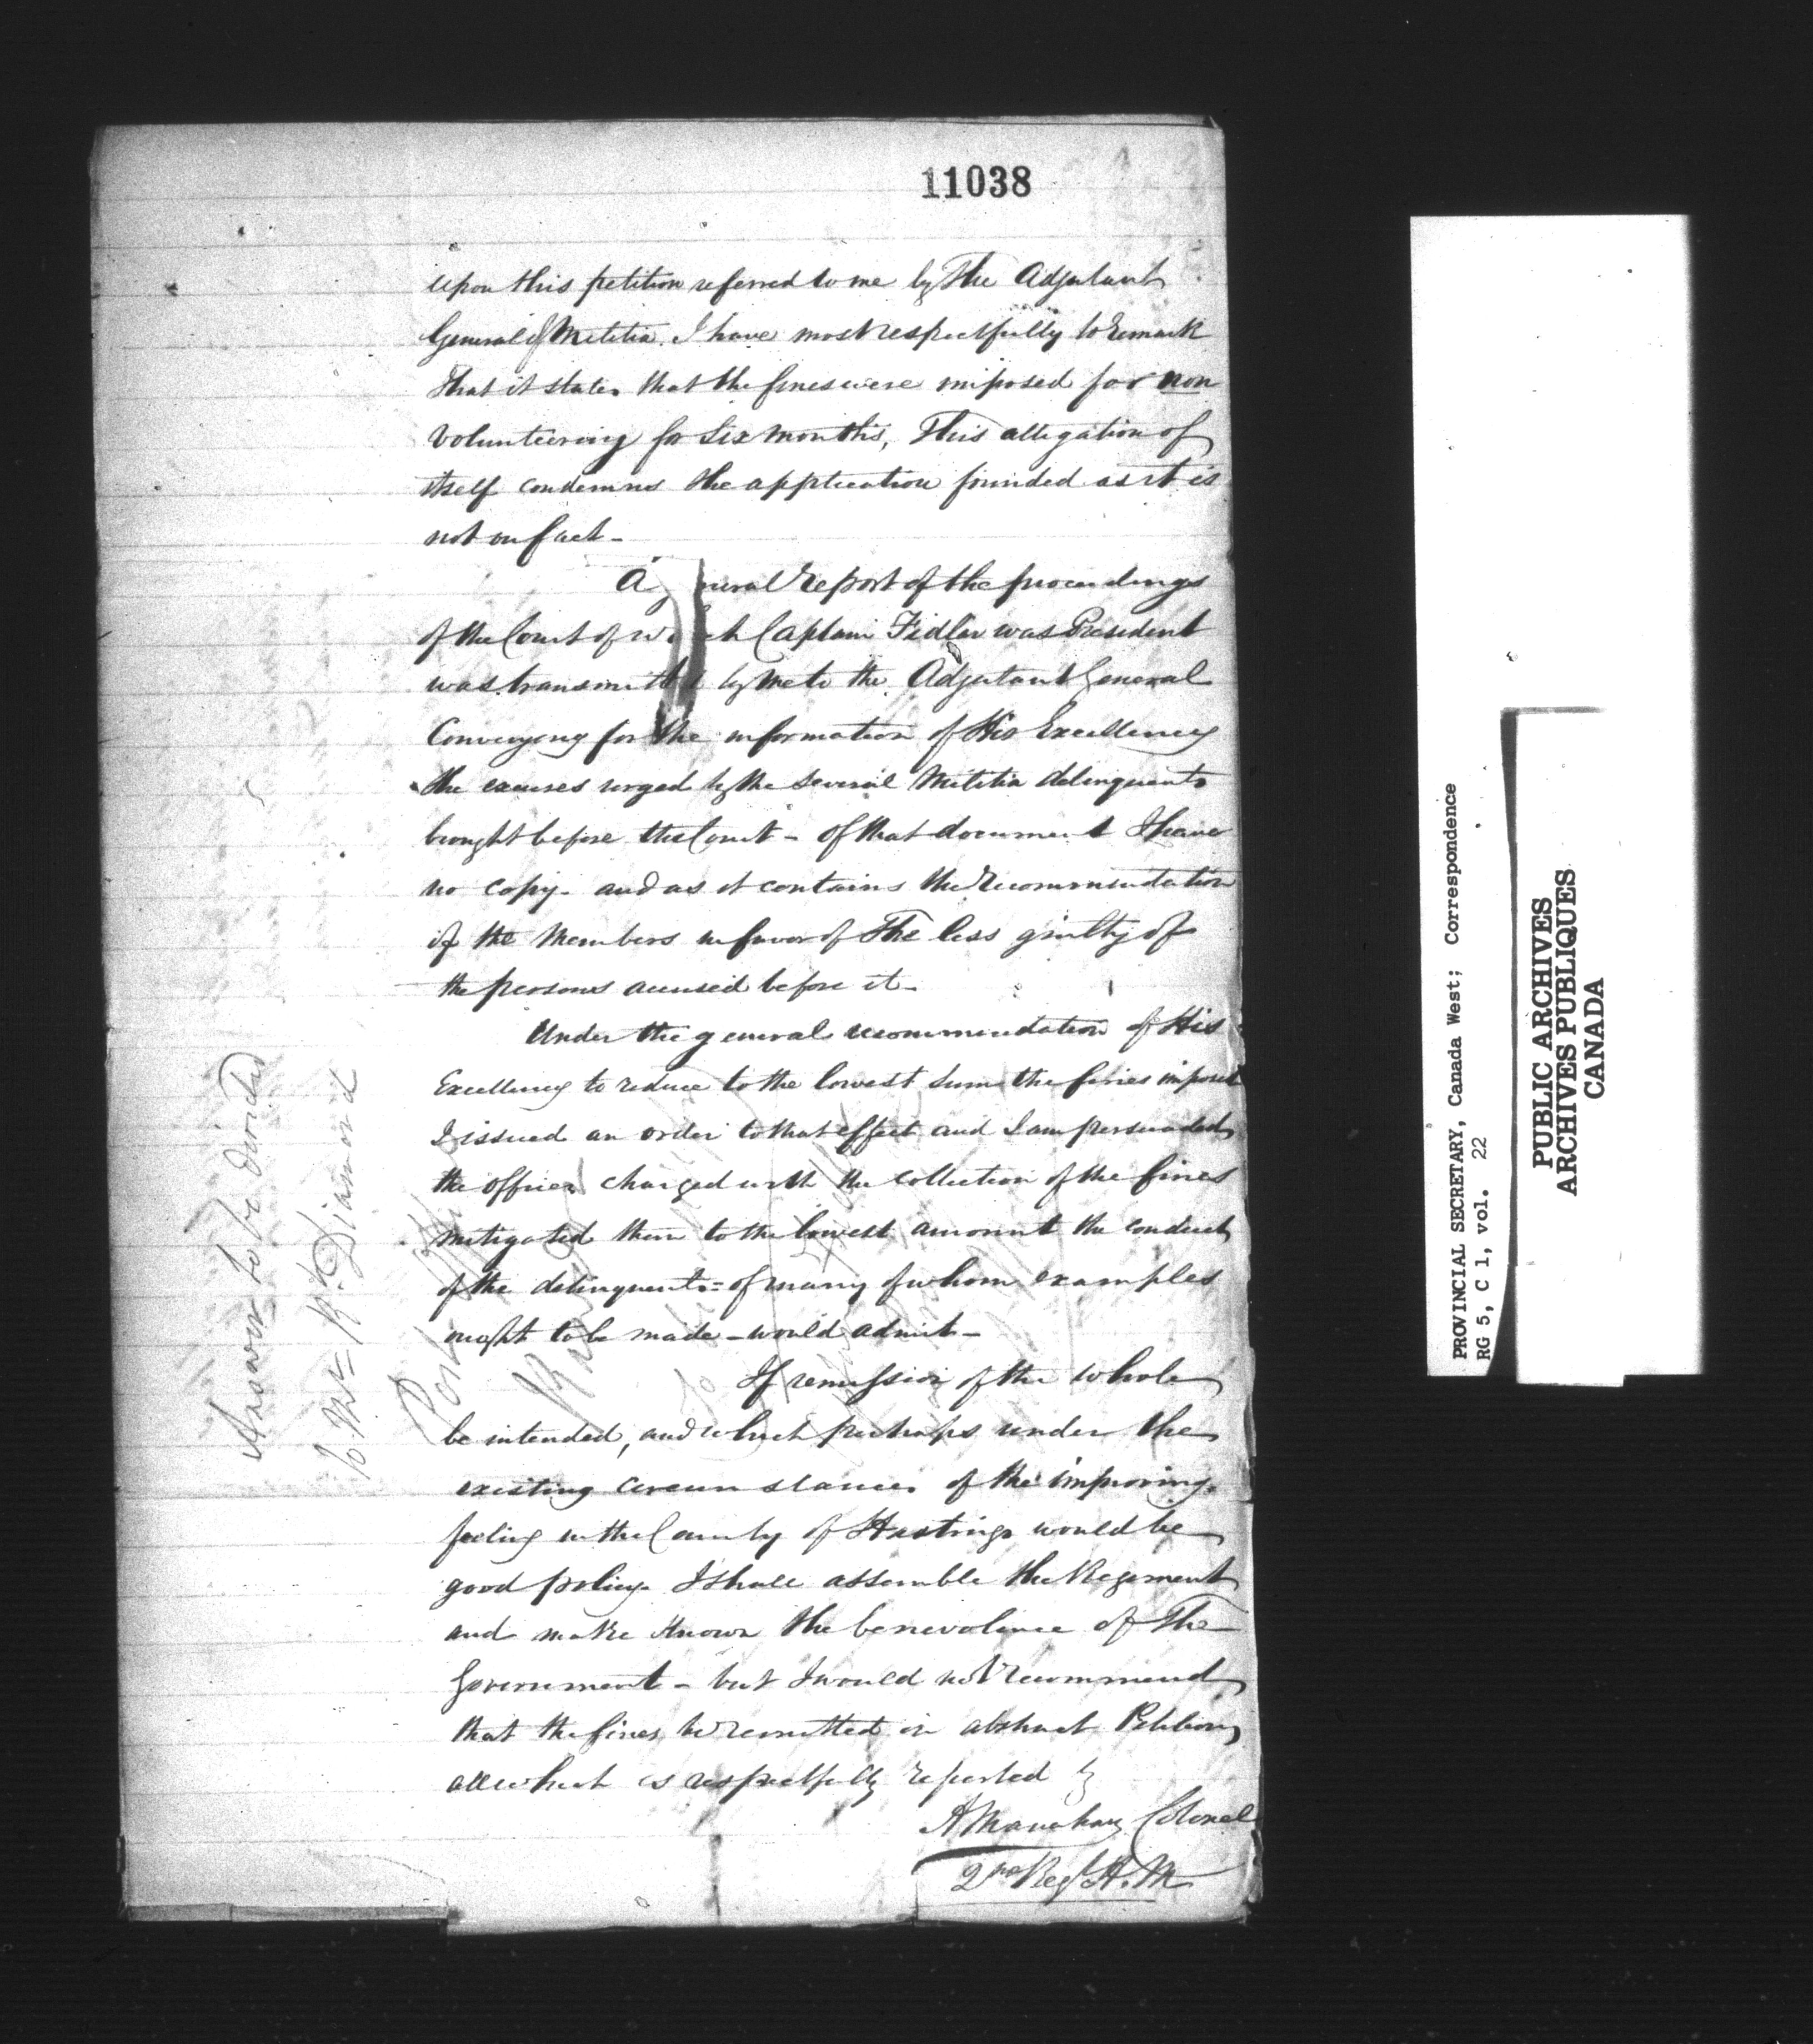 11038
upon this petition referred to me by The Adjutant
General of Militia. I have most respectfully to remark
That it states that the fines were imposed for non
volunteering for Six months, This allegation of
itself condemns the application founded as it is
not on fact -
A neral report of the proceedings
of the Court of which Captain Fidlar was President
was transmitted by me to the Adjutant General
Conveying for the information of His Excellency
the excuses urged by the several Militia delinquents
brought before the Court - of that document I have
no copy - and as it contains the recommendation
of the Members in favor of The less guilty of
the persons accused before it -
Under the general recommendation of His
Excellency to reduce to the lowest sum the fines imposed
I issued an order to that effect and I am persuaded
the officer charged with the collection of the fines
mitigated them to the lowest amount the conduct
of the delinquents = of many of whom examples
ought to be made - would admit -
If remission of the whole
be intended, and which perhaps under the
existing circumstances of the improving
feeling in the County of Hastings would be
good policy. I shall assemble the Regiment
and make known the benevolence of The
Government - but I would not recommend
that the fines be remitted on abstract Petitions
all which is respectfully reported by
A Manahan Colonel
2nd Regt H. M
Answer to be directed
to Mr R. Diamond
PROVINCIAL SECRETARY, Canada West; Correspondence
RG 5, C 1, vol. 22
PUBLIC ARCHIVES
ARCHIVES PUBLIQUES
CANADA